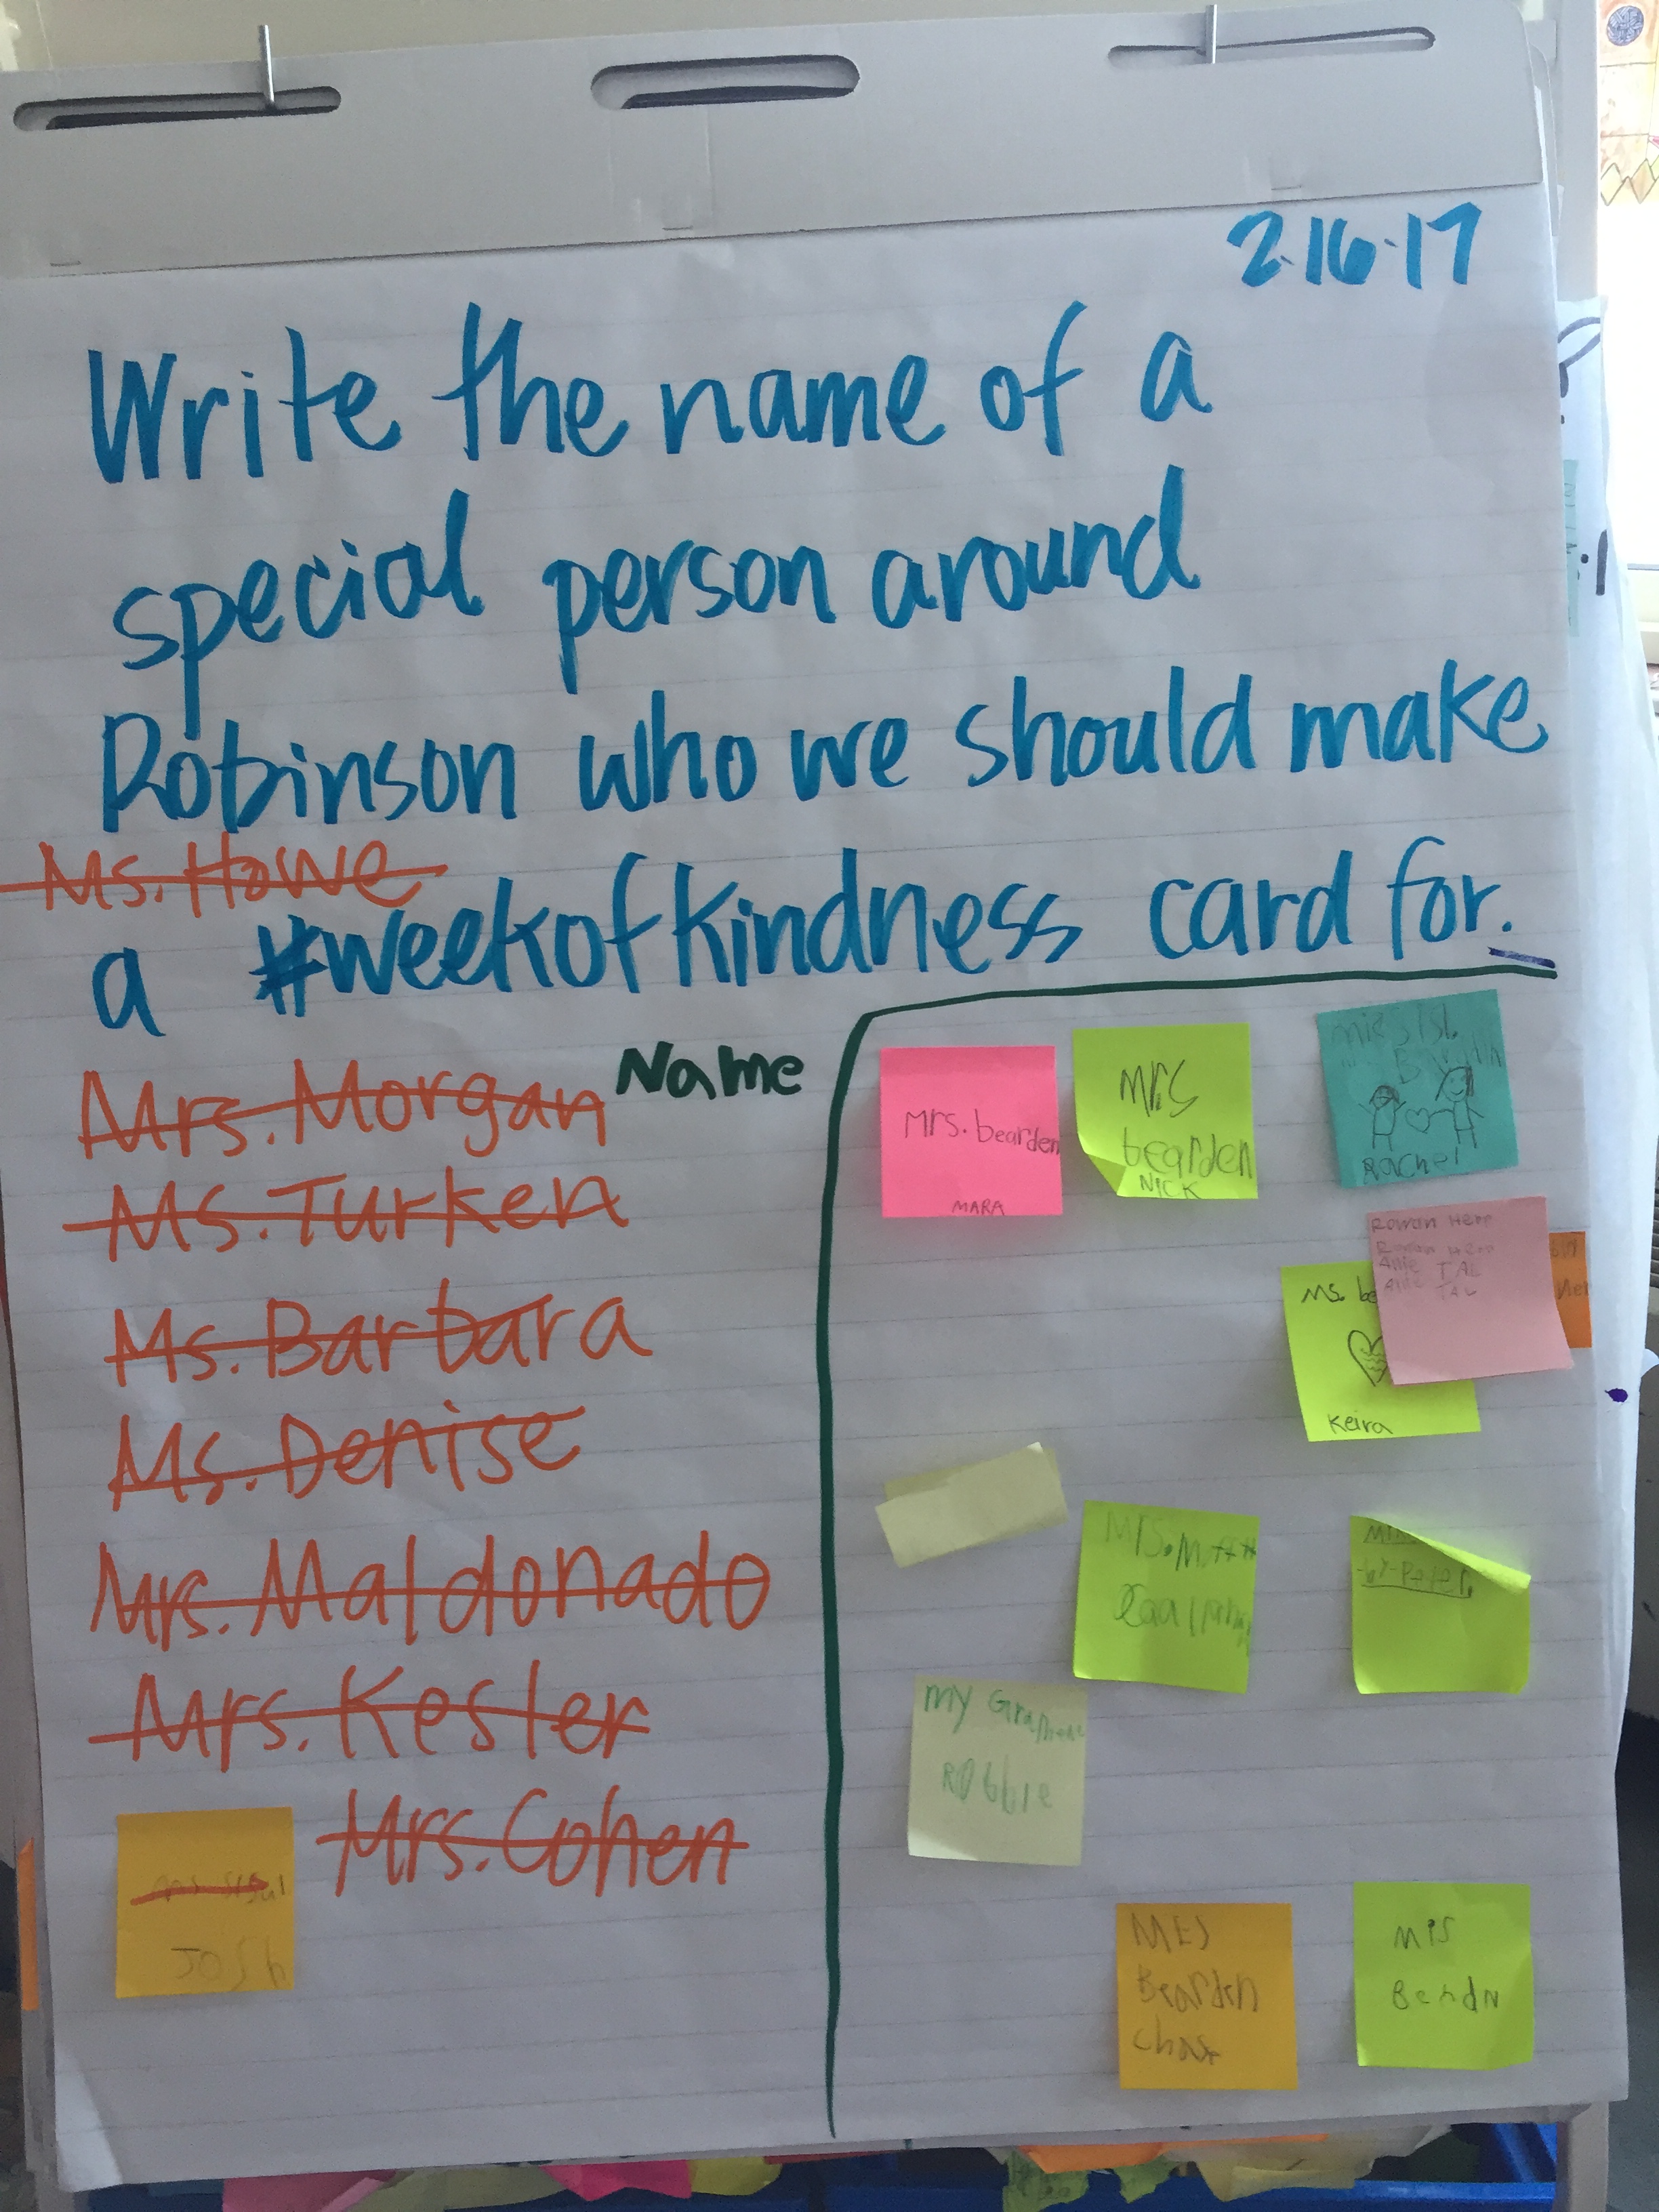 2.16.17
Write the name of a
special person around
Robinson who we should make
Ms. Howe
a #weekofkindness card for.
Name
Mrs. Morgan
Ms. Turken
Ms. Barbara
Ms. Denise
Mrs. Maldonado
Mrs. Kester
Mrs. Cohen
JOSh
Mrs. bearden
MARA
Mrs
bearden
NICK
Rachel
Rowan
Rowan
Allie TAL
Allie TAL
Ms. be
Keira
Mrs.
My
RObbie
-by-Peter.
Bearden
Chas
Mis